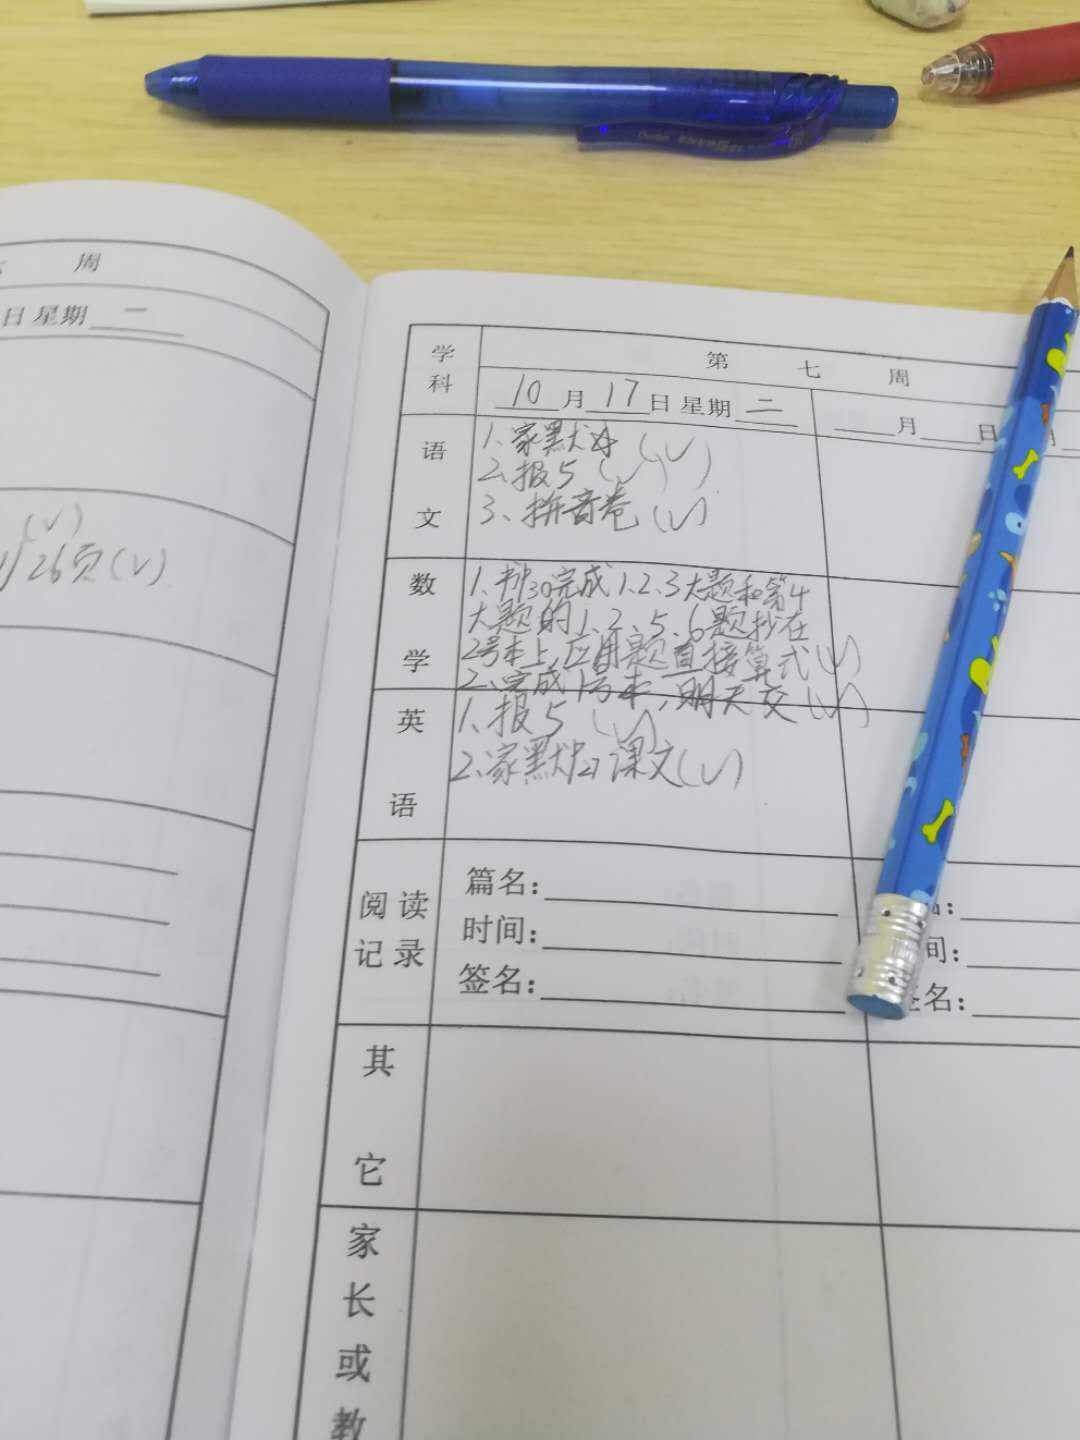 周
日 星期 一
(√)
26页(√)
学科
第 七 周
10月17日 星期二
月 日
语文
1、家默 (√)
2、报5 (√)(√)
3、拼音卷(√)
数学
1、书30完成1.2.3大题和第4
大题的1、2、5、6题抄在
2号本上,应用题直接算式(√)
2、完成1号本,明天交(√)
英语
1、报5 (√)
2、家默 课文(√)
阅读记录
篇名:
时间:
签名:
间:
名:
其它
家长或教
Pentel